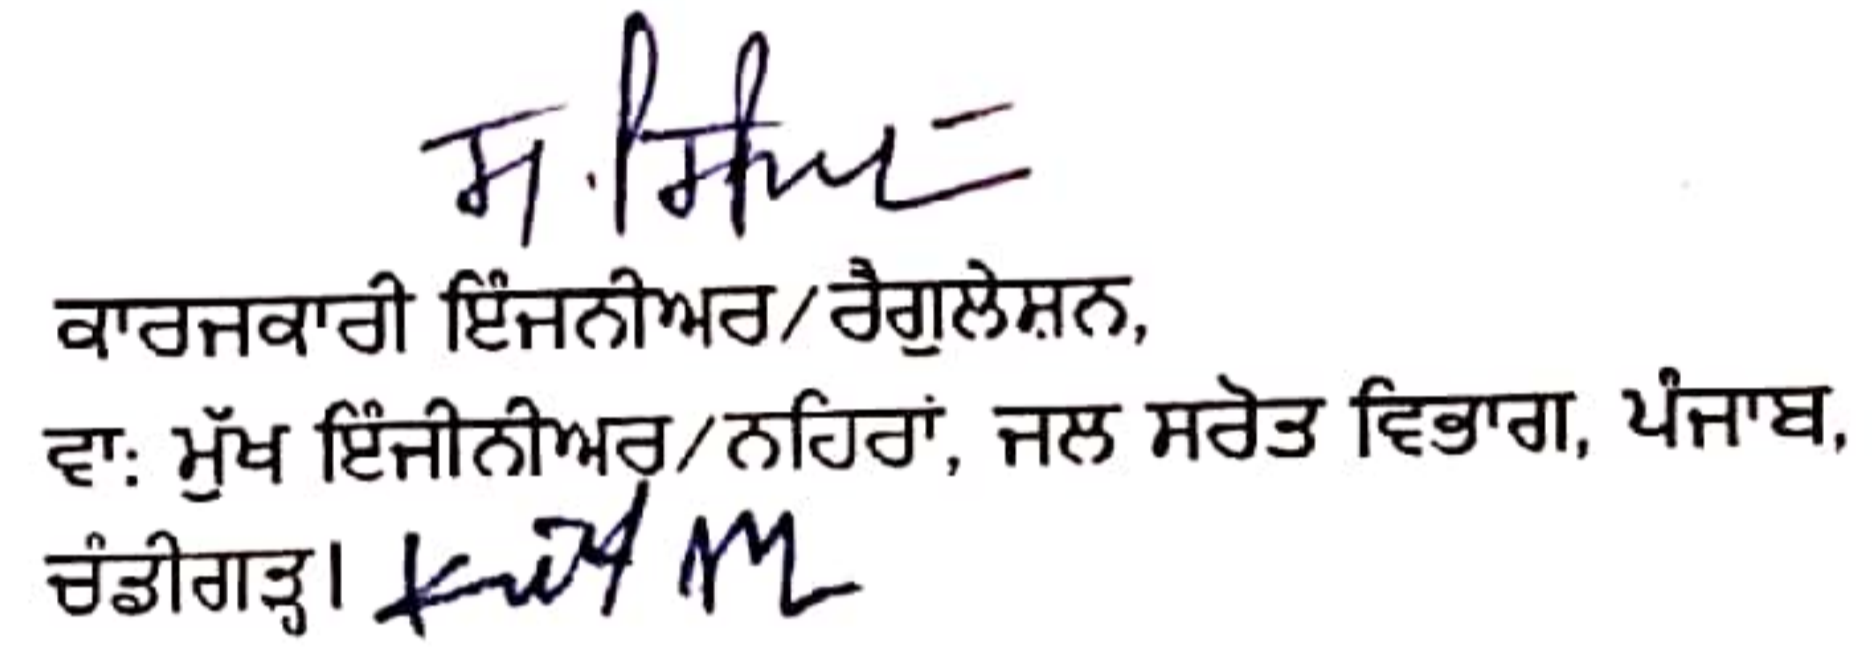 ਕਾਰਜਕਾਰੀ ਇੰਜਨੀਅਰ/ਰੈਗੁਲੇਸ਼ਨ,
ਵਾ: ਮੁੱਖ ਇੰਜੀਨੀਅਰ/ਨਹਿਰਾਂ, ਜਲ ਸਰੋਤ ਵਿਭਾਗ, ਪੰਜਾਬ,
ਚੰਡੀਗੜ੍ਹ।